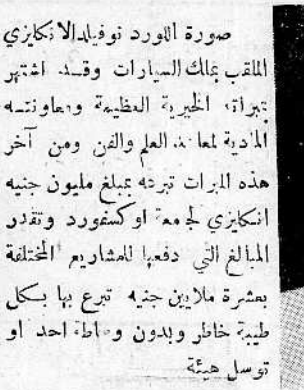 صورة اللورد نوفيلد الانكليزي
الملقب بملك السيارات وقد اشتهر
بمبراته الخيرية العظيمة ومعاونته
المادية لمعاهد العلم والفن ومن آخر
هذه المبرات تبرعه بمبلغ مليون جنيه
انكليزي لجامعة اوكسفورد وتقدر
المبالغ التي دفعها للمشاريع المختلفة
بعشرة ملايين جنيه تبرع بها بكل
طيبة خاطر وبدون وساطة احد او
توسل هيئة